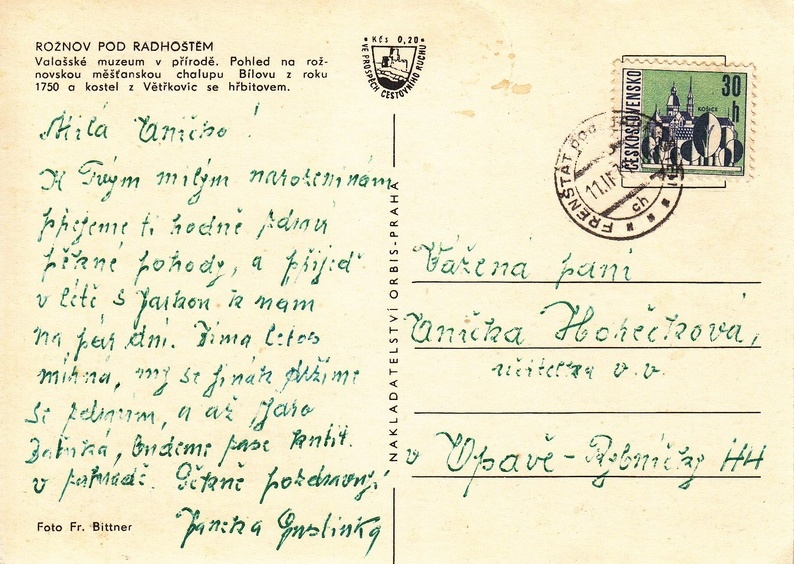 ROŽNOV POD RADHOŠTĚM
Valašské muzeum v přírodě. Pohled na rož-
novskou měšťanskou chalupu Bílovu z roku
1750 a kostel z Větřkovic se hřbitovem.
Kčs 0,20
VE PROSPĚCH CESTOVNÍHO RUCHU
Milá Aničko!
K Tvým milým narozeninám
přejeme ti hodně zdraví
pěkné pohody, a přijeď
v létě s Jarkou k nám
na pár dní. Zima letos
mírná, my se jinak držíme
se zdravím, a až Jaro
zaťuká, budeme zase kutit
v zahradě. Pěkně pozdravují
NAKLADATELSTVÍ ORBIS-PRAHA
ČESKOSLOVENSKO
30 h
KOŠICE
FRENŠTÁT POD
ch
Vážená paní
Anička
učitelka v.v.
v Opavě - Rybníčky 44
Foto Fr. Bittner